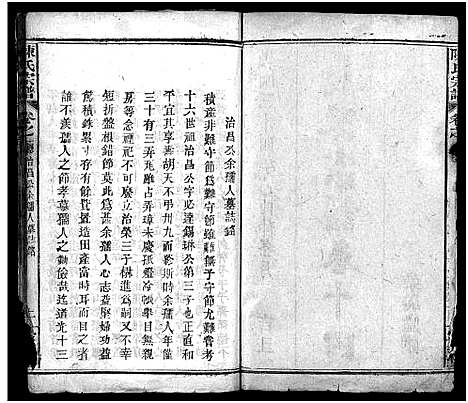 陳氏宗譜
治昌公余孺人墓誌銘
積產非難守節為難守節雖難撫子守節尤難嘗考
十六世治昌公字必達錫琳公第三子也正直和
平宜其享壽胡天不弔卅九而斯時余孺人年僅
三十有三弄瓦雖占弄璋未慶孤燈冷帳舉目無親
房等念禋祀不可廢立治榮三子棋進為嗣門內
短折盤根錯節莫此為甚余孺人心志益堅婦功益
篤積銖累寸存有餘貲疊造田產富時耳而目之者
誰不羨孺人之節孝慕孺人之勤儉哉迄道光十三
陳氏宗譜
卷之
治昌公余孺人墓誌銘